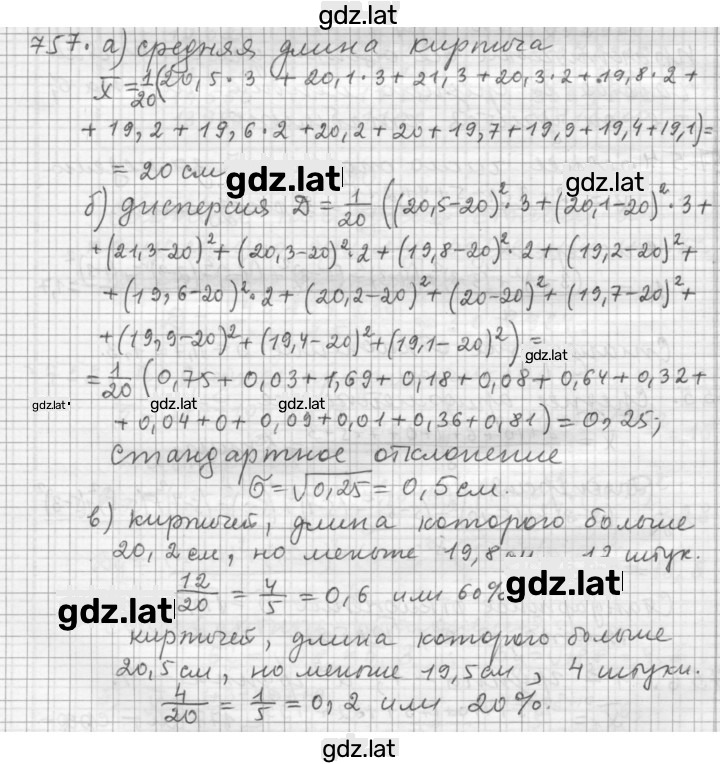 gdz.lat
757. а) средняя длина кирпича
x̄ = 1/20 (20,5·3 + 20,1·3 + 21,3 + 20,3·2 + 19,8·2 +
+ 19,2 + 19,6·2 + 20,2 + 20 + 19,7 + 19,9 + 19,4 + 19,1) =
= 20 см
gdz.lat
gdz.lat
б) дисперсия D = 1/20 ((20,5-20)²·3 + (20,1-20)²·3 +
+ (21,3-20)² + (20,3-20)²·2 + (19,8-20)²·2 + (19,2-20)² +
+ (19,6-20)²·2 + (20,2-20)² + (20-20)² + (19,7-20)² +
+ (19,9-20)² + (19,4-20)² + (19,1-20)²) =
gdz.lat
= 1/20 (0,75 + 0,03 + 1,69 + 0,18 + 0,08 + 0,64 + 0,32 +
gdz.lat
gdz.lat
gdz.lat
+ 0,04 + 0 + 0,09 + 0,01 + 0,36 + 0,81) = 0,25;
стандартное отклонение
σ = √0,25 = 0,5 см.
в) кирпичей, длина которого больше
20,2 см, но меньше 19,8 штук.
12/20 = 4/5 = 0,6 или 60%
gdz.lat
gdz.lat
кирпичей, длина которого больше
20,5 см, но меньше 19,5 см, 4 штуки.
4/20 = 1/5 = 0,2 или 20%.
gdz.lat